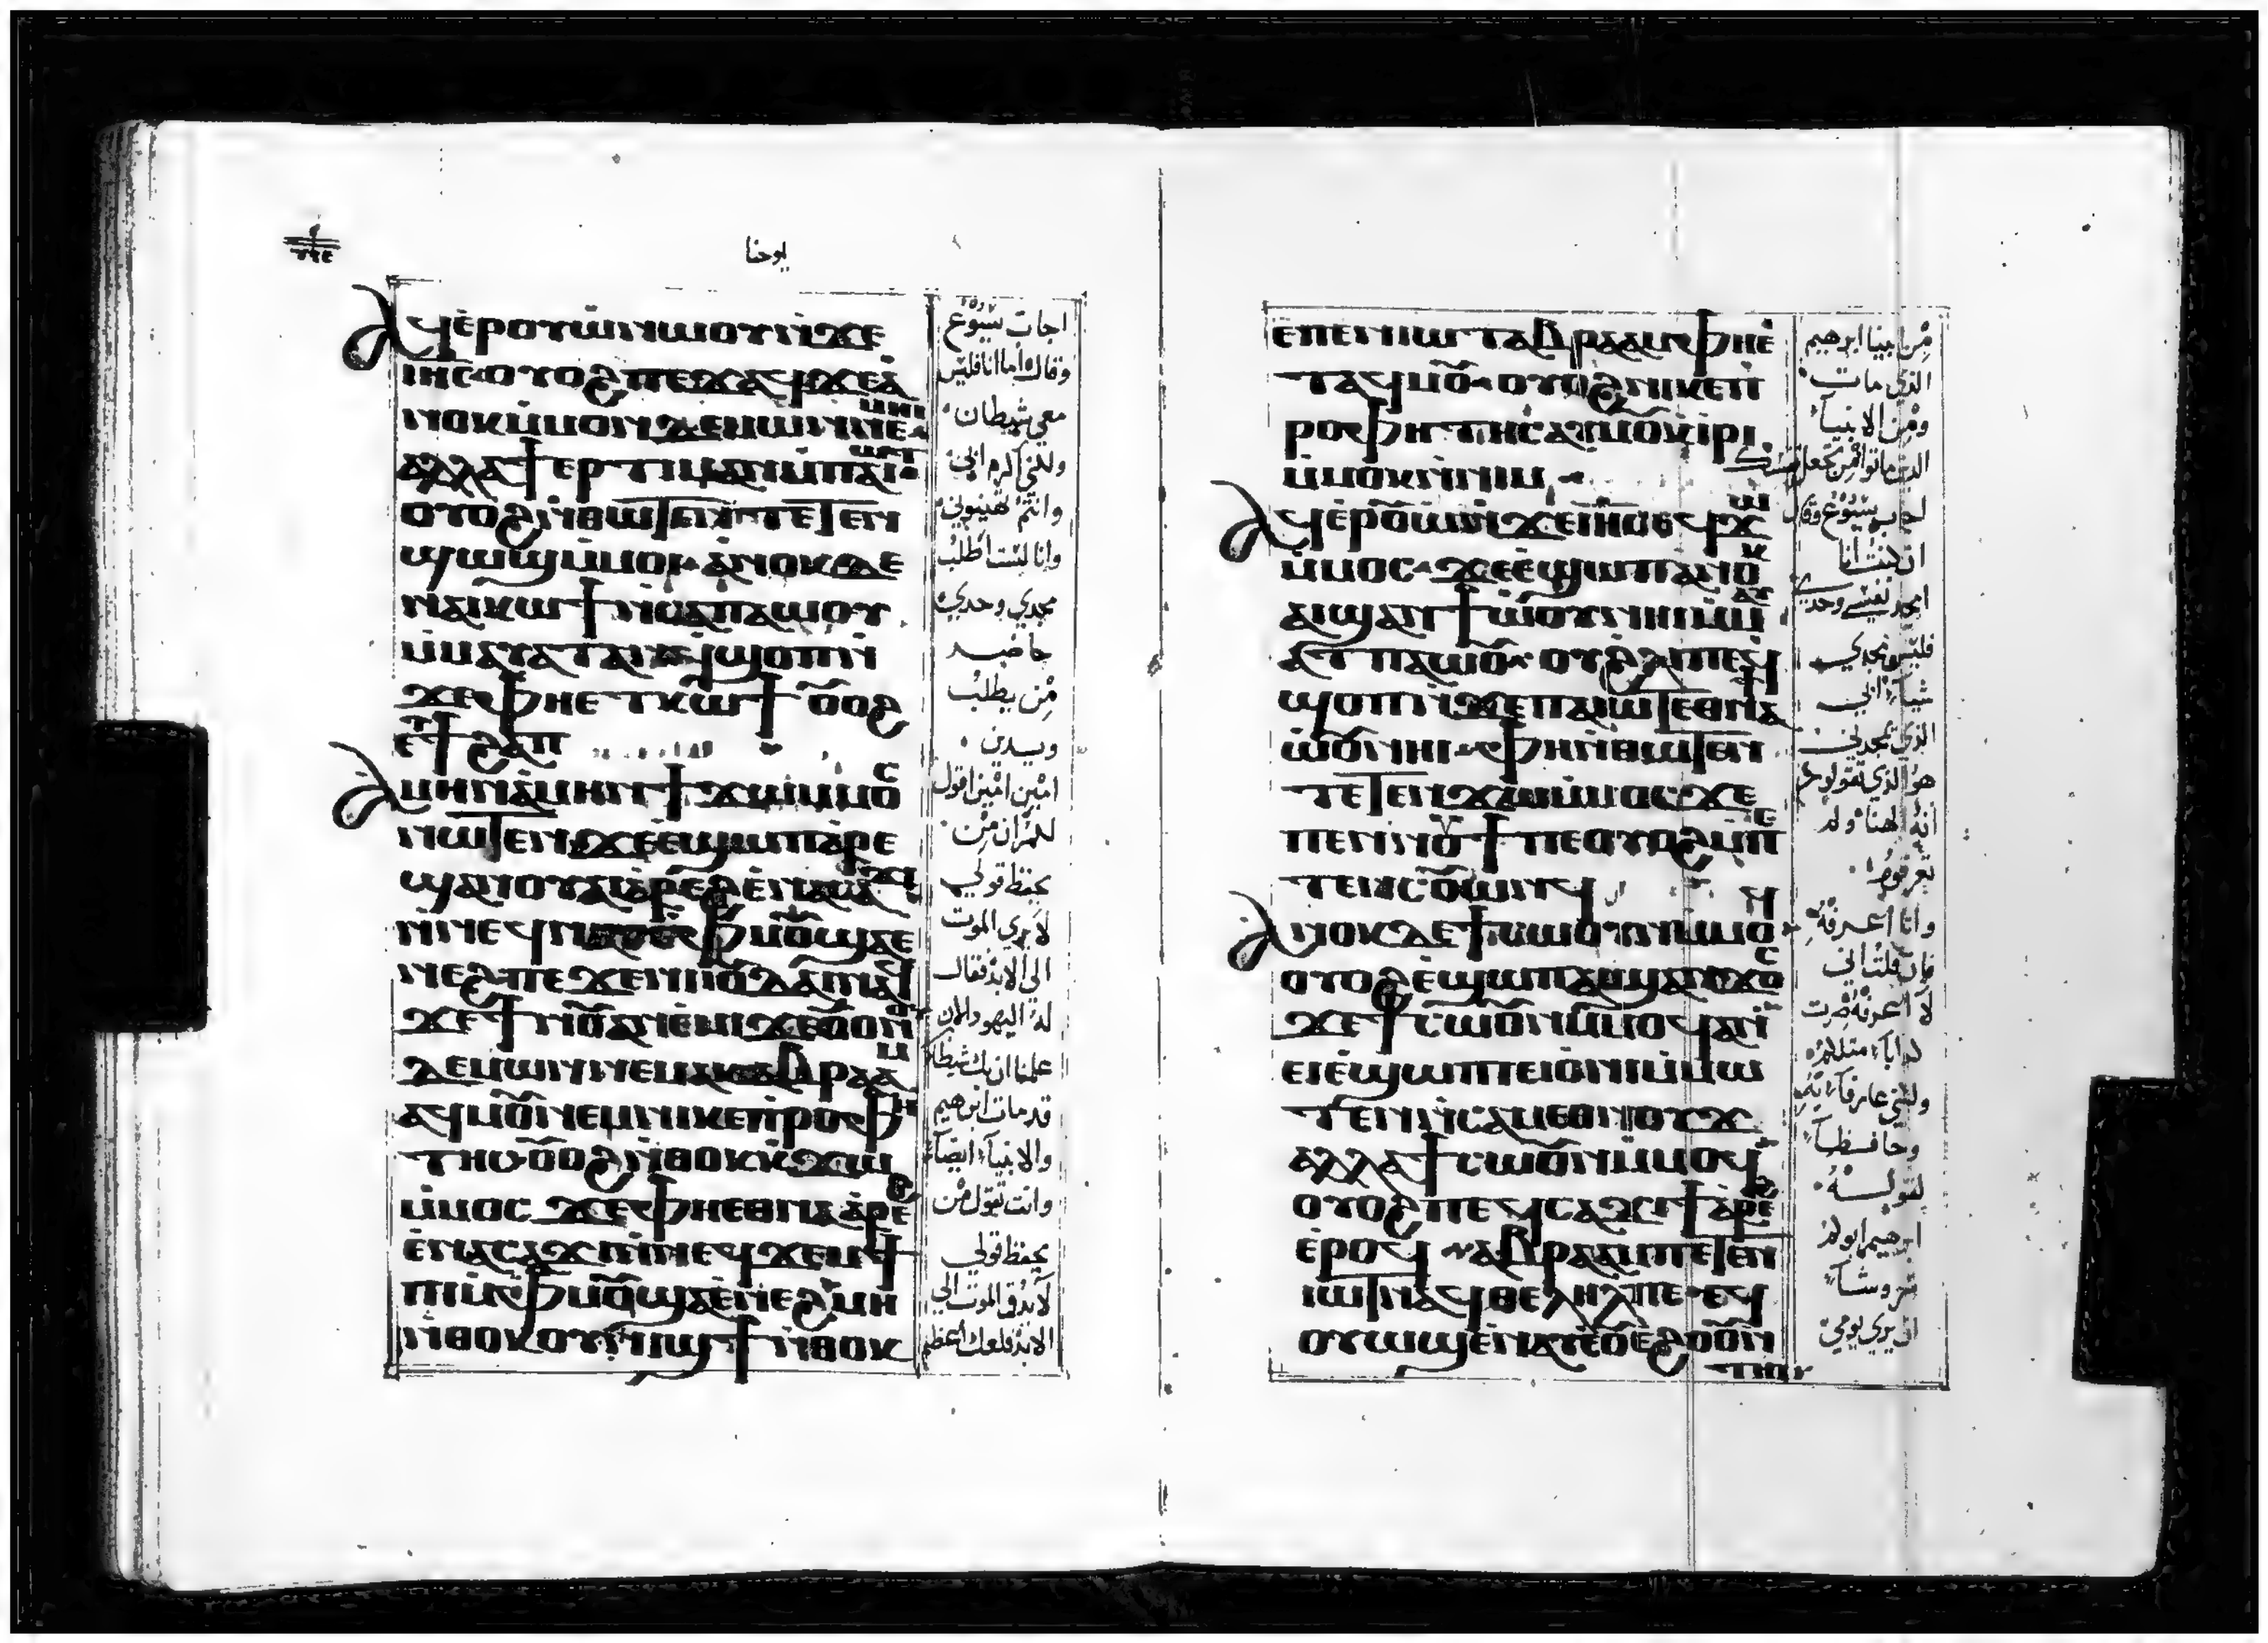 يوحنا
ⲁϥⲉⲣⲟⲩⲱ̀ⲛⲱⲟⲩⲛ̀ϫⲉ
ⲓⲏ̅ⲥ̅ ⲟⲩⲟϩ ⲡⲉϫⲁϥ ϫⲉⲁ̀
ⲛⲟⲕ ⲙ̀ⲙⲟⲛ ⲇⲉⲙⲱⲛ ⲛⲉⲙⲏⲓ
ⲁⲗⲗⲁ ϯⲉⲣⲧⲓⲙⲁⲛ ⲙ̀ⲡⲁⲓⲱⲧ
ⲟⲩⲟϩ ⲛ̀ⲑⲱⲧⲉⲛ ⲧⲉⲧⲉⲛ
ϣⲱϣ ⲙ̀ⲙⲟⲓ ⲁ̀ⲛⲟⲕ ⲇⲉ
ⲛⲁⲓⲕⲱϯ ⲛ̀ⲥⲁ ⲡⲁⲱⲟⲩ
ⲙ̀ⲙⲁⲩⲁⲧ ⲁⲛ ϥϣⲟⲡ ⲛ̀
ϫⲉ ⲫⲏⲉⲧⲕⲱϯ ⲟ̅ⲟϩ
ⲉⲧϯϩⲁⲡ
ⲁⲙⲏⲛ ⲁ̀ⲙⲏⲛ ϯϫⲱ ⲙ̀ⲙⲟⲥ
ⲛⲱⲧⲉⲛ ϫⲉ ⲉ̀ϣⲱⲡ ⲁ̀ⲣⲉ
ϣⲁⲛ ⲟⲩⲁⲓ ⲁ̀ⲣⲉϩ ⲉ̀ⲡⲁⲥⲁϫⲓ
ⲛⲉϩ ⲡⲉϫⲉ ⲛⲓⲓⲟⲩⲇⲁⲓ ⲛⲁϥ
ϫⲉ ϯⲛⲟⲩ ⲁⲛⲉⲙⲓ ϫⲉ ⲟⲩⲟⲛ
ⲇⲉⲙⲱⲛ ⲛⲉⲙⲁⲕ ⲁⲃⲣⲁⲁⲙ
ⲁϥⲙⲟⲩ ⲛⲉⲙ ⲛⲓⲕⲉⲡⲣⲟⲫⲏ
ⲧⲏⲥ ⲟ̅ⲟϩ ⲛ̀ⲑⲟⲕ ⲕ̀ϫⲱ
ⲙ̀ⲙⲟⲥ ϫⲉ ⲫⲏⲉⲑⲛⲁⲁ̀ⲣⲉϩ
ⲉ̀ⲡⲁⲥⲁϫⲓ ⲛ̀ⲛⲉϥϫⲉⲙϯ
ⲡⲓ ⲙ̀ⲫⲙⲟⲩ ϣⲁ ⲉ̀ⲛⲉϩ ⲙⲏ
ⲛ̀ⲑⲟⲕ ⲟⲩⲛⲓϣϯ ⲛ̀ⲑⲟⲕ
اجاب يسوع
وقال اما انا فليس
معي شيطان
ولكني اكرم ابي
وانتم تهينوني
وانا لست اطلب
مجدي وحدي
من يطلب
ويدين
امين امين اقول
لكم ان من
يحفظ قولي
لا يرى الموت
الى الابد فقال
له اليهود الان
علمنا ان بك شيطان
قد مات ابرهيم
والانبياء ايضا
وانت تقول من
يحفظ قولي
لا يذوق الموت الى
الابد فلعلك اعظم
ⲉⲡⲉⲛⲓⲱⲧ ⲁⲃⲣⲁⲁⲙ ⲫⲏⲉ̀
ⲧⲁϥⲙⲟ̅ ⲟⲩⲟϩ ⲛⲓⲕⲉⲡ
ⲣⲟⲫⲏⲧⲏⲥ ⲁⲩⲙⲟⲩ ⲕⲓⲣⲓ
ⲙ̀ⲙⲟⲕ ⲛ̀ⲛⲓⲙ
ⲁϥⲉⲣⲟ̅ⲱ ⲛ̀ϫⲉ ⲓⲏ̅ⲥ̅ ⲉϥϫⲱ
ⲙ̀ⲙⲟⲥ ϫⲉ ⲉ̀ϣⲱⲡ ⲁⲛⲟⲕ
ⲁⲓϣⲁⲛϯⲱ̀ⲟⲩ ⲛⲏⲓ ⲙ̀ⲙⲁⲩ
ⲁⲧ ⲡⲁⲱⲟ̅ ⲟⲩϩⲗⲓ ⲡⲉ ϥ
ϣⲟⲡ ⲛ̀ϫⲉ ⲡⲁⲓⲱⲧ ⲉⲑⲛⲁϯ
ⲱ̀ⲟ̅ ⲛⲏⲓ ⲫⲏ ⲛ̀ⲑⲱⲧⲉⲛ
ⲧⲉⲧⲉⲛϫⲱ ⲙ̀ⲙⲟⲥ ϫⲉ
ⲡⲉⲛⲛⲟⲩϯ ⲡⲉ ⲟⲩⲟϩ ⲙ̀ⲡⲉ
ⲧⲉⲛⲥⲟ̅ⲱⲛϥ
ⲁⲛⲟⲕ ⲇⲉ ϯⲥⲱⲟⲩⲛ ⲙ̀ⲙⲟϥ
ⲟⲩⲟϩ ⲉ̀ϣⲱⲡ ⲁⲓϣⲁⲛϫⲟⲥ
ϫⲉ ϯⲥⲱⲟ̅ⲛ ⲙ̀ⲙⲟϥ ⲁⲛ
ⲉⲓⲉ̀ϣⲱⲡⲓ ⲉⲓⲟ̀ⲛⲓ ⲙ̀ⲙⲱ
ⲧⲉⲛ ⲛ̀ⲥⲁⲙⲉⲑⲛⲟⲩϫ
ⲁⲗⲗⲁ ϯⲥⲱⲟ̅ⲛ ⲙ̀ⲙⲟϥ
ⲟⲩⲟϩ ⲡⲉϥⲥⲁϫⲓ ϯⲁ̀ⲣⲉϩ
ⲉ̀ⲣⲟϥ ⲁⲃⲣⲁⲁⲙ ⲡⲉⲧⲉⲛ
ⲓⲱⲧ ⲛⲁϥⲑⲉⲗⲏⲗ ⲡⲉ ⲉϥ
ⲟⲩⲱϣ ⲉ̀ⲛⲁⲩ ⲉⲟ̅ⲉϩⲟⲟ̅ⲛ
ⲧⲏⲓ
من ابينا ابرهيم
الذي مات
ومن الانبياء
الذين ماتوا من تجعل نفسك
اجاب يسوع وقال
ان كنت انا
امجد نفسي وحدي
فليس مجدي
شيا ابي
الذي يمجدني
هو الذي تقولون
انه الهنا ولم
تعرفوه
وانا اعرفه
فان قلت اني
لا اعرفه صرت
كذابا مثلكم
ولكني عارفا به
وحافظا
لقوله
ابرهيم ابوكم
ان يرى يومي